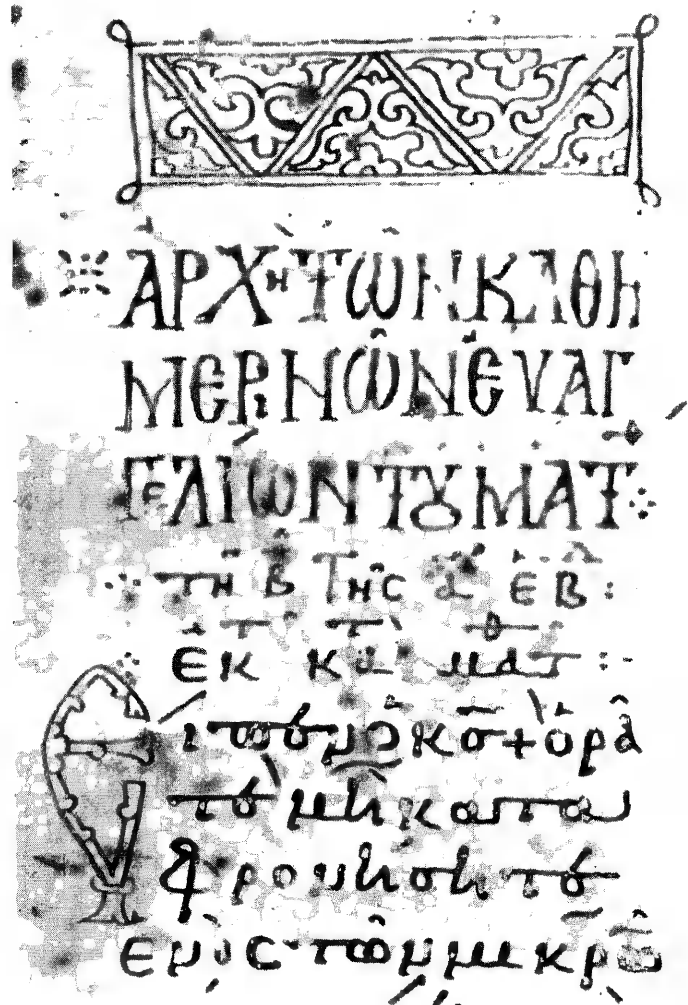 ΑΡΧΗ ΤΩΝ ΚΑΘΗ
ΜΕΡΙΝΩ͂Ν ΕΥΑΓ
ΓΕΛΙΩΝ ΤΟΥ ΜΑΤ
τῆ β̂ τῆς α ἑβ :
ἐκ τ κατ ματθ :-
Εἶπεν ὁ κ̅ς̅ + ὁρᾶ
τε μὴ κατα
φρονήσητε
ἑνὸς τῶν μικρῶ